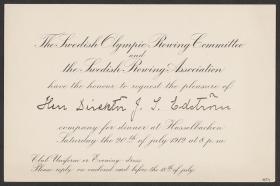 The Swedish Olympic Rowing Committee
and
the Swedish Rowing Association
have the honour to request the pleasure of
Herr Direktör J. S. Edström
company for dinner at Hasselbacken
Saturday the 20th of july 1912 at 8 p.m.
Club Uniform or Evening-dress
Please reply on enclosed card before the 18th of july.